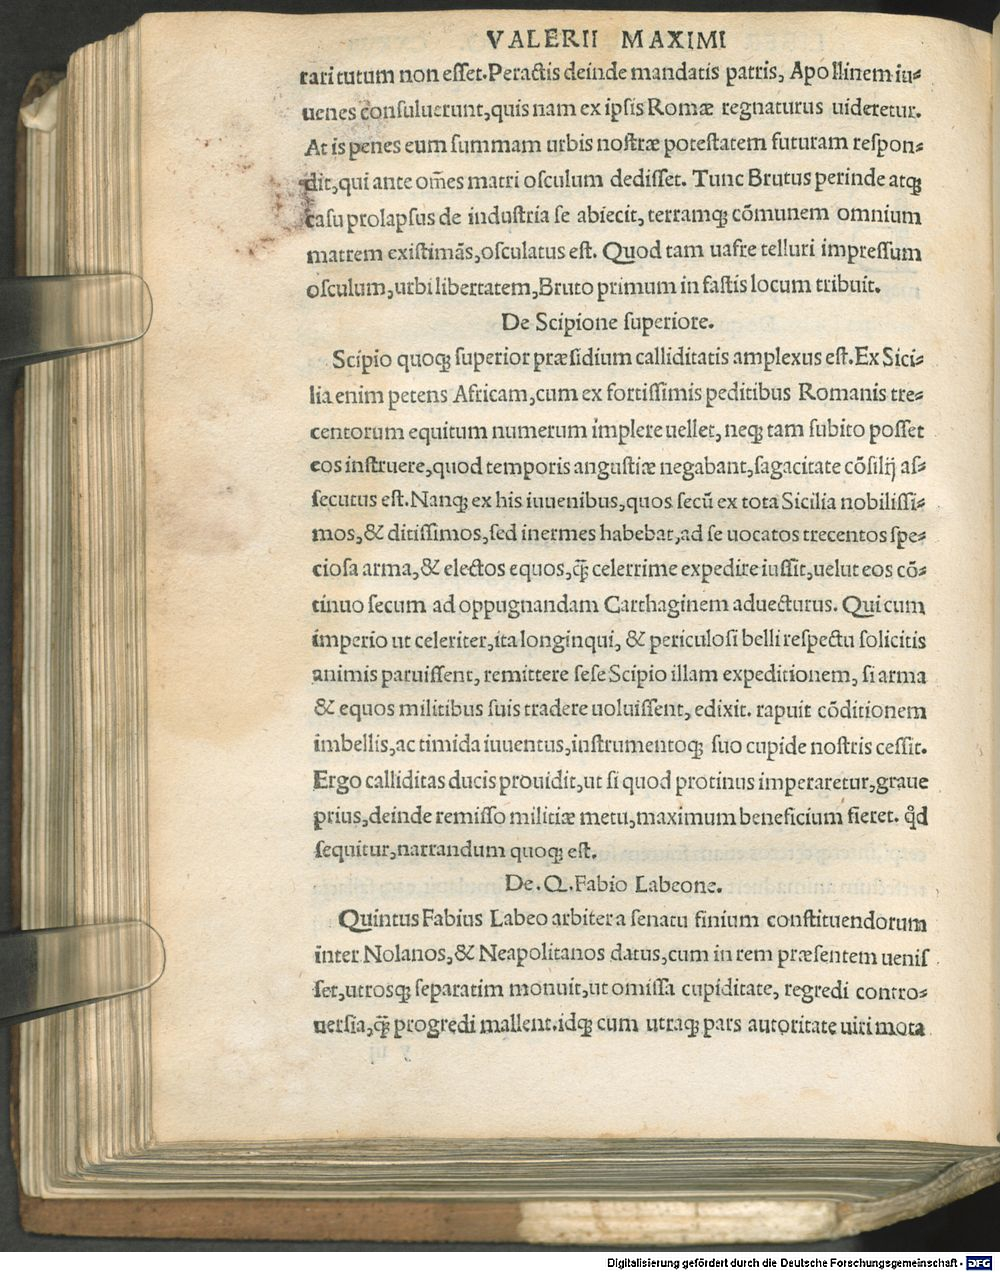 VALERII MAXIMI
rari tutum non esſet. Peractis deinde mandatis patris, Apollinem iu⸗
uenes conſuluerunt, quis nam ex ipſis Romæ regnaturus uideretur.
At is penes eum ſummam urbis noſtræ poteſtatem futuram reſpon⸗
dit, qui ante om̄es matri oſculum dediſſet. Tunc Brutus perinde atqꝫ
caſu prolapſus de induſtria ſe abiecit, terramqꝫ cōmunem omnium
matrem exiſtimās, oſculatus eſt. Quod tam uafre telluri impreſſum
oſculum, urbi libertatem, Bruto primum in faſtis locum tribuit.
De Scipione ſuperiore.
Scipio quoqꝫ ſuperior præſidium calliditatis amplexus eſt. Ex Sici⸗
lia enim petens Africam, cum ex fortiſſimis peditibus Romanis tre⸗
centorum equitum numerum implere uellet, neqꝫ tam ſubito poſſet
eos inſtruere, quod temporis anguſtiæ negabant, ſagacitate cōſilij aſ⸗
ſecutus eſt. Nanqꝫ ex his iuuenibus, quos ſecū ex tota Sicilia nobiliſſi⸗
mos, & ditiſſimos, ſed inermes habebat, ad ſe uocatos trecentos ſpe⸗
cioſa arma, & electos equos, q̄ꝫ celerrime expedire iuſſit, uelut eos cō⸗
tinuo ſecum ad oppugnandam Carthaginem aduecturus. Qui cum
imperio ut celeriter, ita longinqui, & periculoſi belli reſpectu ſolicitis
animis paruiſſent, remittere ſeſe Scipio illam expeditionem, ſi arma
& equos militibus ſuis tradere uoluiſſent, edixit. rapuit cōditionem
imbellis, ac timida iuuentus, inſtrumentoqꝫ ſuo cupide noſtris ceſſit.
Ergo calliditas ducis prouidit, ut ſi quod protinus imperaretur, graue
prius, deinde remiſſo militiæ metu, maximum beneficium fieret. qͦd
ſequitur, narrandum quoqꝫ eſt.
De. Q. Fabio Labeone.
Quintus Fabius Labeo arbiter a ſenatu finium conſtituendorum
inter Nolanos, & Neapolitanos datus, cum in rem præſentem ueniſ
ſet, utroſqꝫ ſeparatim monuit, ut omiſſa cupiditate, regredi contro⸗
uerſia, q̄ꝫ progredi mallent. idqꝫ cum utraqꝫ pars autoritate uiri mota
Digitalisierung gefördert durch die Deutsche Forschungsgemeinschaft - DFG